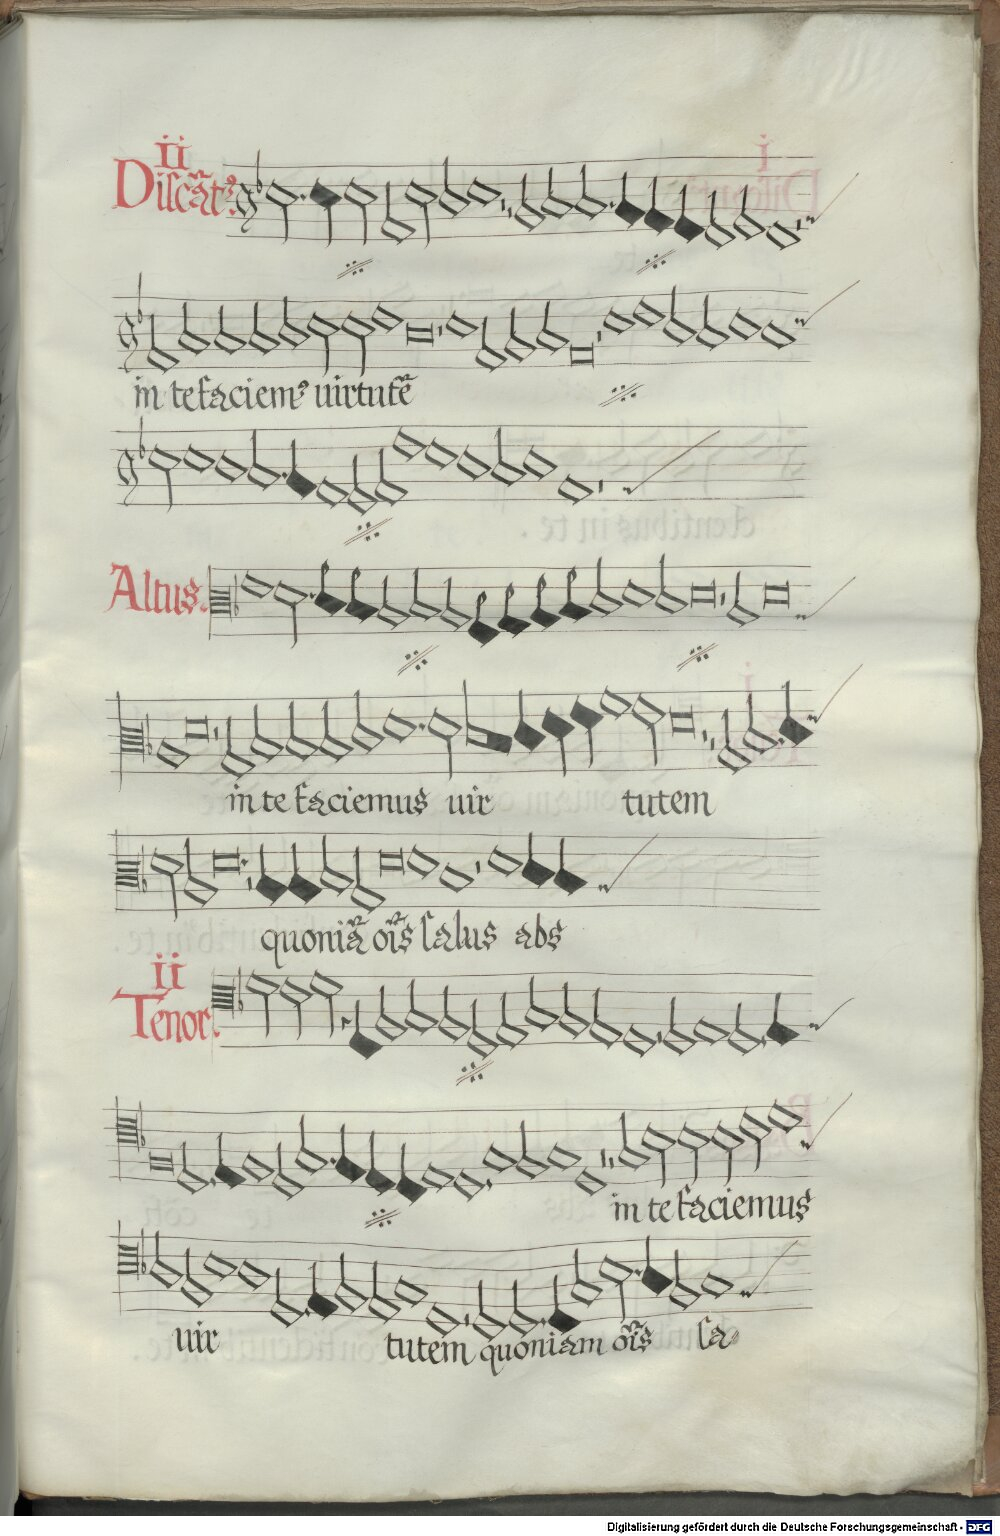 ii
Discãt9.
in te faciem9 uirtutẽ
Altus.
in te faciemus uir tutem
quoniã oĩs salus abs
ii
Tenor.
in te faciemus
uir tutem quoniam oĩs sa
Digitalisierung gefördert durch die Deutsche Forschungsgemeinschaft - DFG